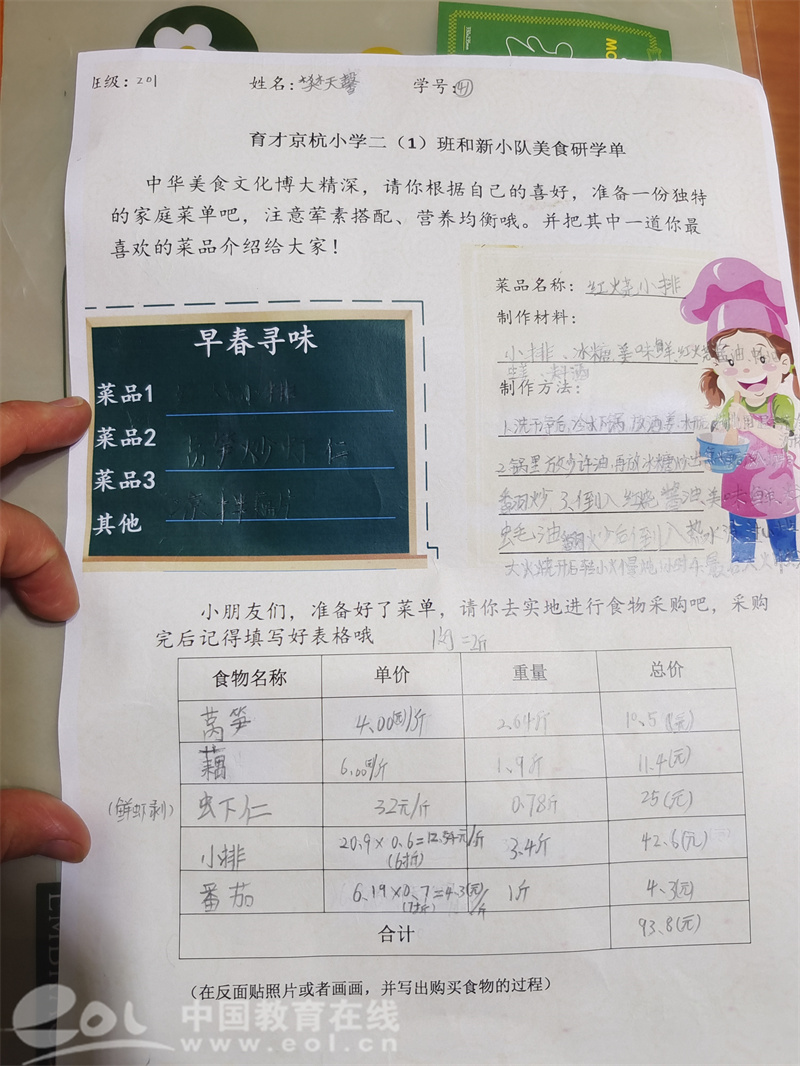 班级：201 姓名：樊天馨 学号：41
育才京杭小学二（1）班和新小队美食研学单
中华美食文化博大精深，请你根据自己的喜好，准备一份独特
的家庭菜单吧，注意荤素搭配、营养均衡哦。并把其中一道你最
喜欢的菜品介绍给大家！
早春寻味
菜品1 小排
菜品2 莴笋炒虾仁
菜品3
其他
菜品名称：红烧小排
制作材料：
小排、冰糖、美味鲜、红烧酱油、蚝油
生姜、料酒
制作方法：
1.洗干净后，冷水下锅，放酒、姜，水开
2.锅里放少许油，再放冰糖炒出
翻炒 3.倒入红烧酱油、美味鲜、
蚝油翻炒后倒入热水
大火烧开后转小火慢炖 最后大火
小朋友们，准备好了菜单，请你去实地进行食物采购吧，采购
完后记得填写好表格哦
1kg=2斤
食物名称 单价 重量 总价
莴笋 4.00(元)/斤 2.64斤 10.5(元)
藕 6.00元/斤 1.9斤 11.4(元)
(鲜虾剥) 虾仁 32元/斤 0.78斤 25(元)
小排 20.9×0.6=12.54元/斤 3.4斤 42.6(元)
(6折)
番茄 6.19×0.7=4.3(元)/斤 1斤 4.3(元)
(7折)
合计 93.8(元)
（在反面贴照片或者画画，并写出购买食物的过程）
eol 中国教育在线
www.eol.cn